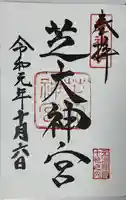 奉拝
芝大神宮
令和元年十月六日